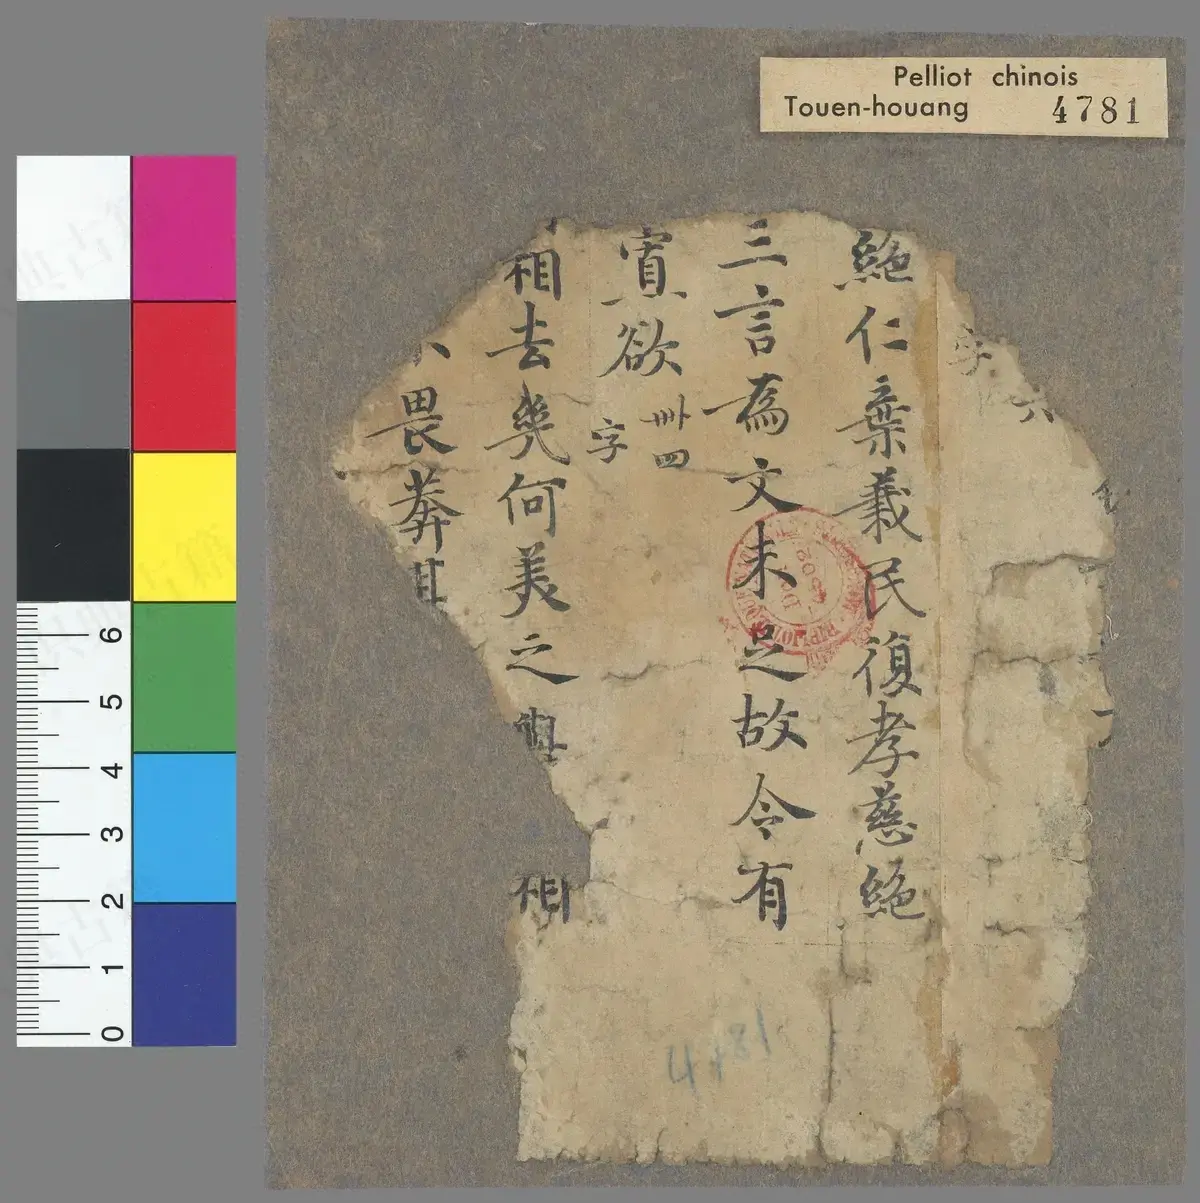 Pelliot chinois
Touen-houang 4781
字 六
絶仁棄義民復孝慈絶
三言為文未足故令有
寡欲 卌四字
相去幾何美之與 相
畏莽其
4781
6
5
4
3
2
1
0